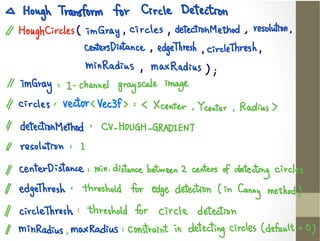 △ Hough Transform for Circle Detection
// HoughCircles( imGray, circles, detectionMethod, resolution,
centersDistance, edgeThresh, circleThresh,
minRadius, maxRadius );
// imGray : 1-channel grayscale image
// circles : vector<Vec3f> : < Xcenter, Ycenter, Radius >
// detectionMethod : CV-HOUGH-GRADIENT
// resolution : 1
// centerDistance : min. distance between 2 centers of detecting circles
// edgeThresh : threshold for edge detection (in Canny method)
// circleThresh : threshold for circle detection
// minRadius, maxRadius : constraint in detecting circles (default = 0)